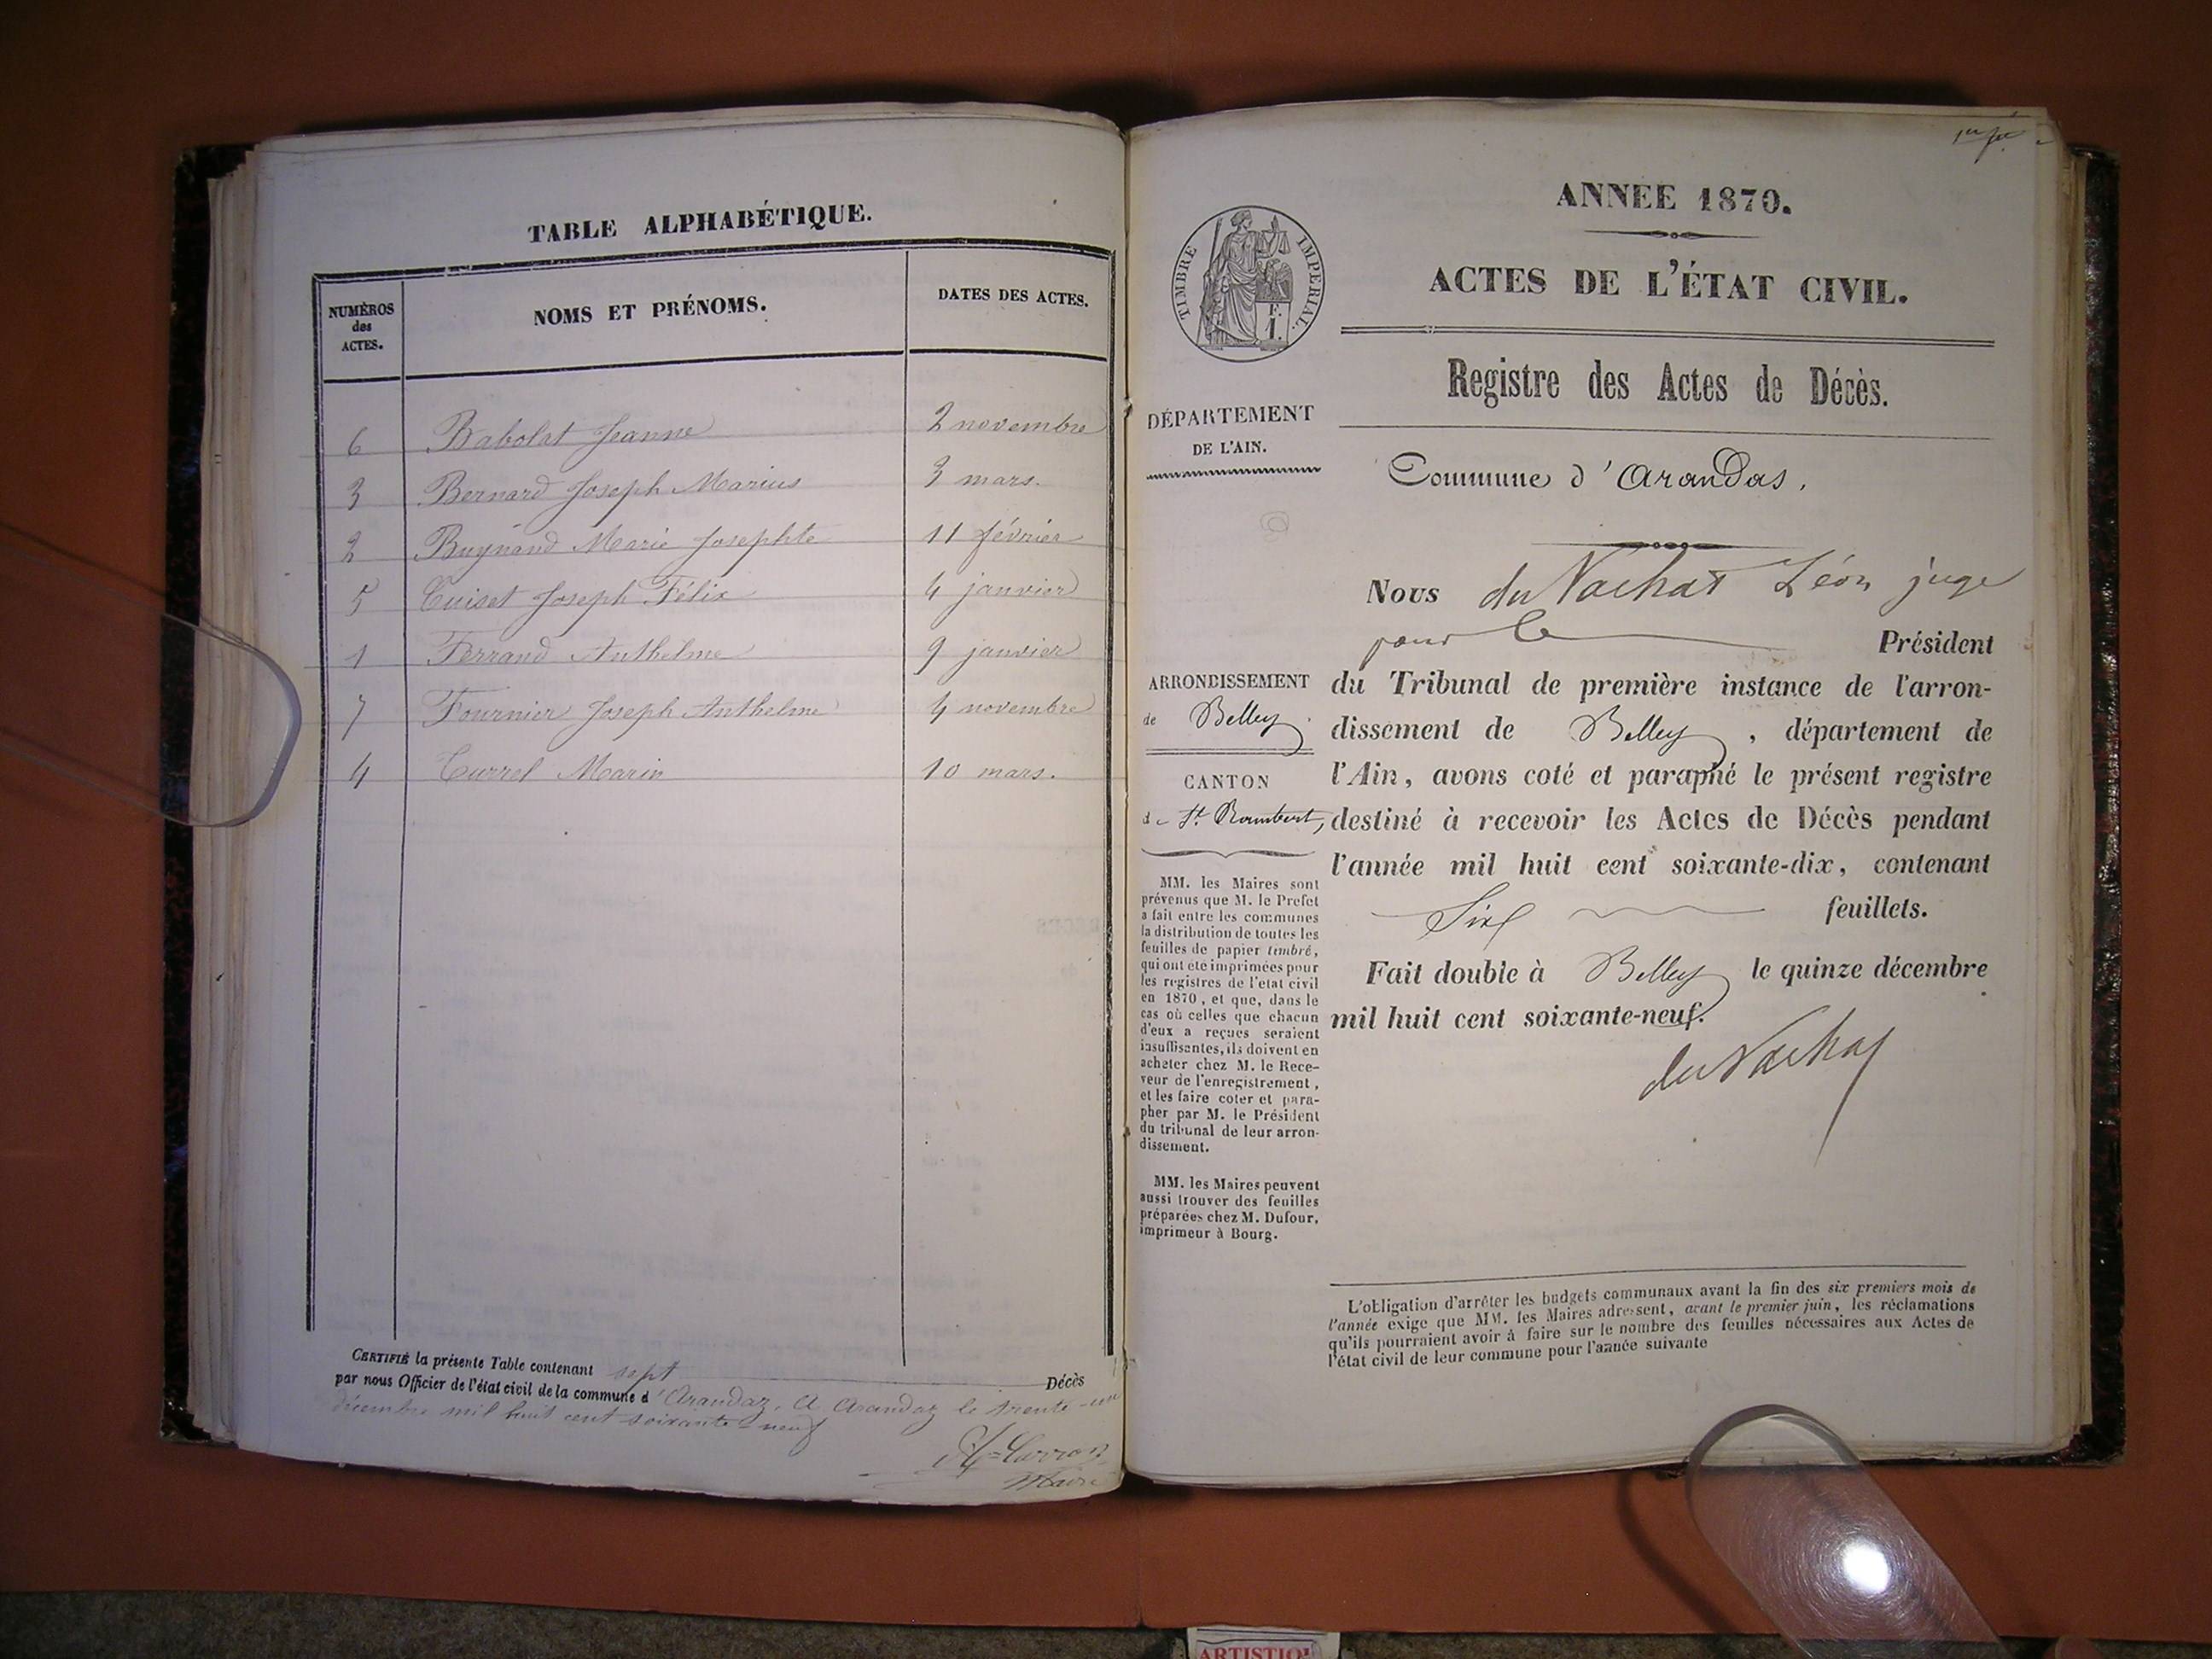 TABLE ALPHABÉTIQUE.
NUMÉROS
des
ACTES.
NOMS ET PRÉNOMS.
DATES DES ACTES.
6 Babolat Jeanne 2 novembre
3 Bernard Joseph Marius 3 mars.
2 Buynand Marie Josephte 11 février
5 Cuiset Joseph Félix 4 janvier
1 Ferrand Anthelme 9 janvier
7 Fournier Joseph Anthelme 4 novembre
4 Curral Marin 10 mars.
CERTIFIÉ la présente Table contenant sept Décès
par nous Officier de l'état civil de la commune d'Arandaz, A Arandaz le trente-un
décembre mil huit cent soixante-neuf
Maire
ANNÉE 1870.
ACTES DE L'ÉTAT CIVIL.
TIMBRE IMPERIAL.
F.
1.
Registre des Actes de Décès.
DÉPARTEMENT
DE L'AIN.
Commune d'Arandas,
Nous du Vachat Léon juge
pour le Président
du Tribunal de première instance de l'arron-
dissement de Belley, département de
l'Ain, avons coté et paraphé le présent registre
destiné à recevoir les Actes de Décès pendant
l'année mil huit cent soixante-dix, contenant
Six feuillets.
Fait double à Belley le quinze décembre
mil huit cent soixante-neuf.
du Vachat
ARRONDISSEMENT
de Belley.
CANTON
de St. Rambert,
MM. les Maires sont
prévenus que M. le Préfet
a fait entre les communes
la distribution de toutes les
feuilles de papier timbré,
qui ont été imprimées pour
les registres de l'état civil
en 1870, et que, dans le
cas où celles que chacun
d'eux a reçues seraient
insuffisantes, ils doivent en
acheter chez M. le Rece-
veur de l'enregistrement,
et les faire coter et para-
pher par M. le Président
du tribunal de leur arron-
dissement.
MM. les Maires peuvent
aussi trouver des feuilles
préparées chez M. Dufour,
imprimeur à Bourg.
L'obligation d'arrêter les budgets communaux avant la fin des six premiers mois de
l'année exige que MM. les Maires adressent, avant le premier juin, les réclamations
qu'ils pourraient avoir à faire sur le nombre des feuilles nécessaires aux Actes de
l'état civil de leur commune pour l'année suivante